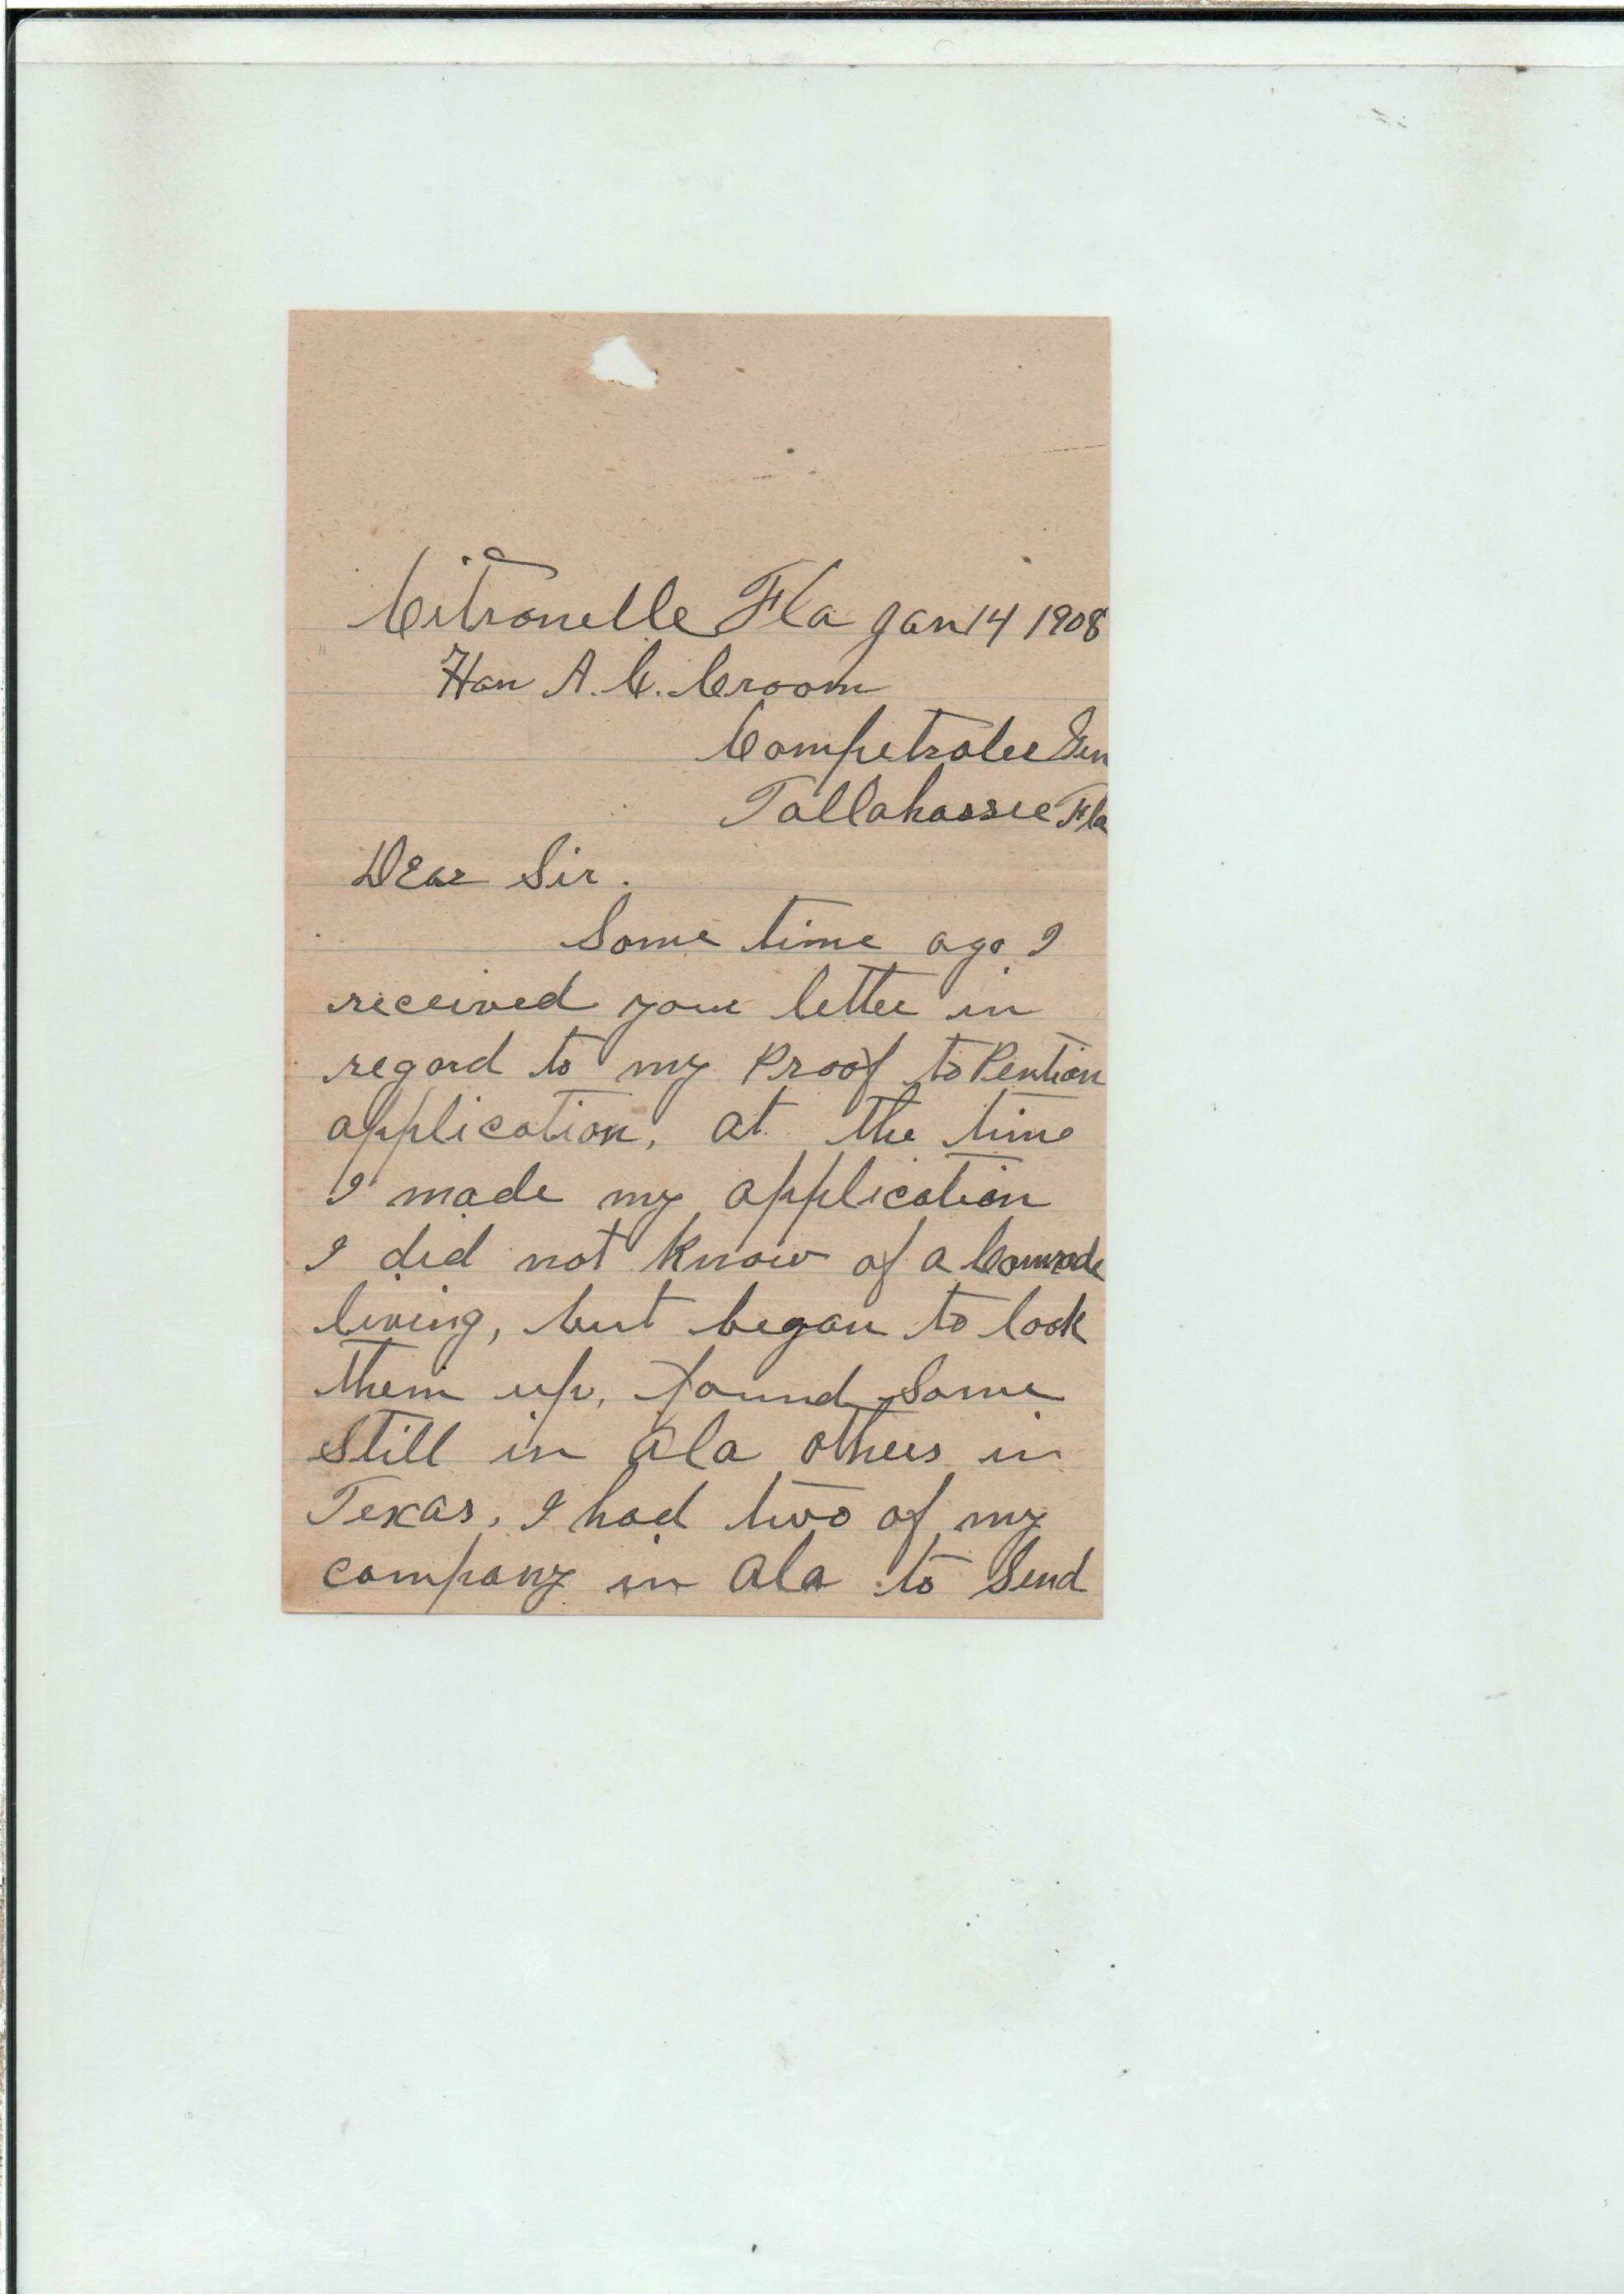 Citronelle Fla Jan 14 1908
Hon A. C. Croom
Competroler Gen
Tallahassee Fla
Dear Sir.
Some time ago I
received your letter in
regard to my Proof to Pention
application, at the time
I made my application
I did not know of a Comrade
living, but began to look
them up, found some
Still in Ala others in
Texas, I had two of my
company in Ala to Send